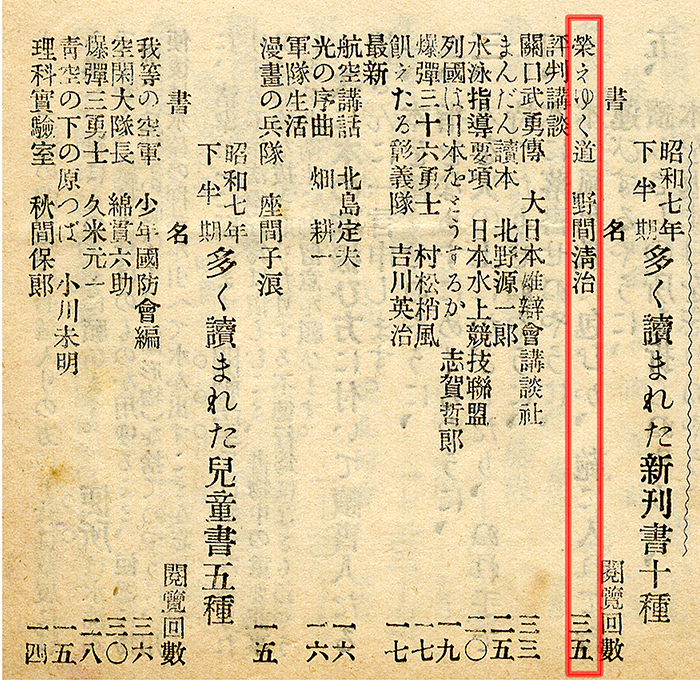 昭和七年下半期 多く讀まれた新刊書十種
書名 閱覽回數
榮えゆく道 野間淸治 三五
評判講談
關口武勇傳 大日本雄辯會講談社 三三
まんだん讀本 北野源一郎 二五
水泳指導要項 日本水上競技聯盟 二〇
列國は日本をどうするか 志賀哲郎 一九
爆彈三十六勇士 村松梢風 一七
飢ゑたる彰義隊 吉川英治 一七
最新
航空講話 北島定夫 一六
光の序曲 畑耕一 一六
軍隊生活
漫畫の兵隊 座間子浪 一五
昭和七年下半期 多く讀まれた兒童書五種
書名 閱覽回數
我等の空軍 少年國防會編 三六
空閑大隊長 綿貫六助 三〇
爆彈三勇士 久米元一 二八
靑空の下の原つぱ 小川未明 一五
理科實驗室 秋間保郎 一四